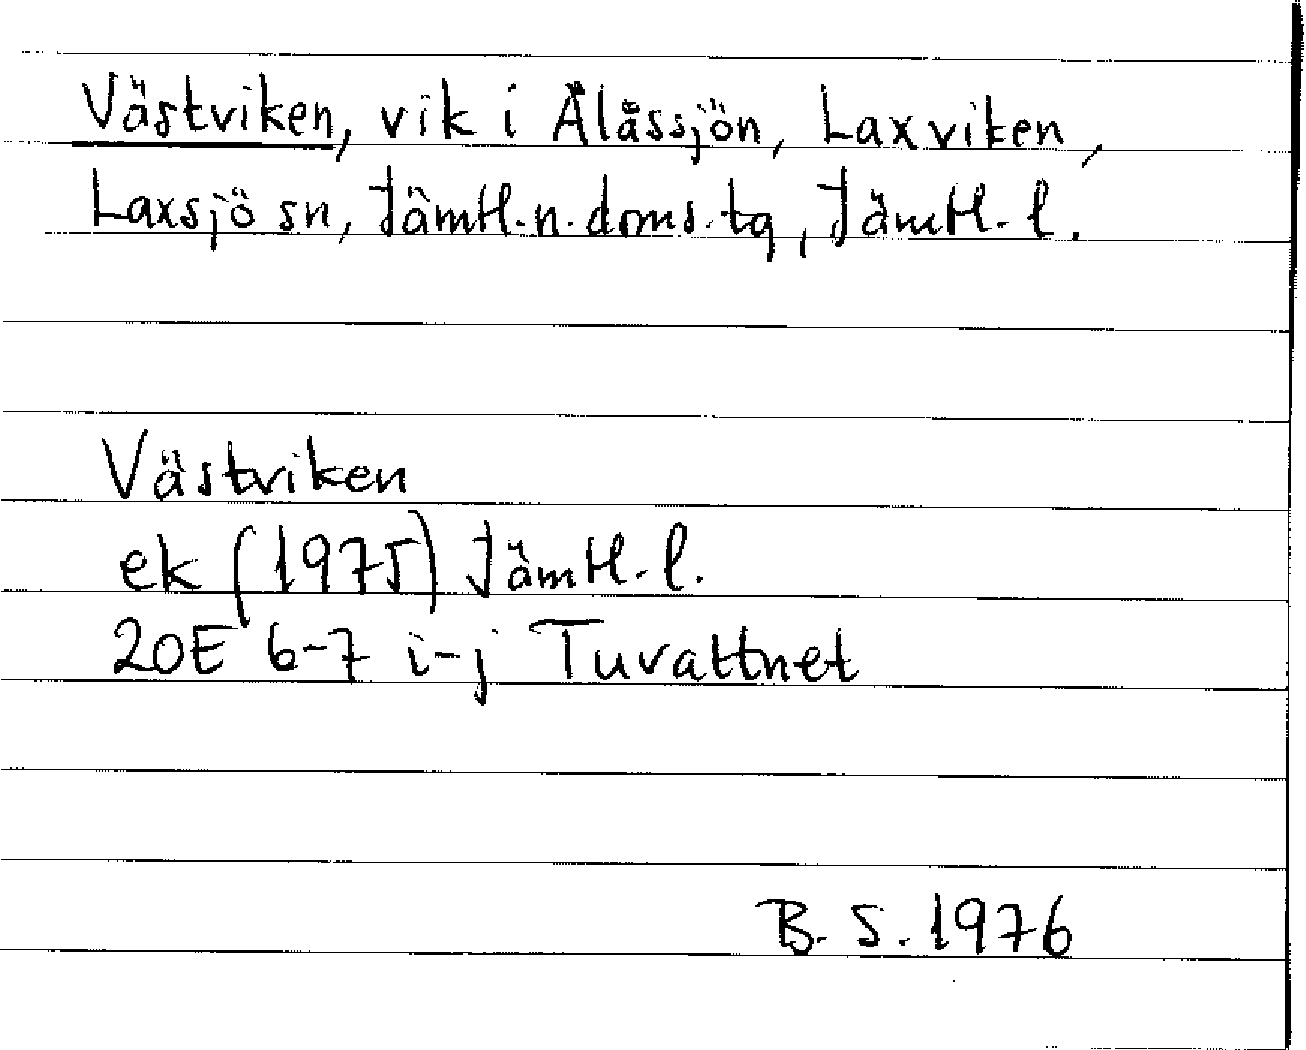 Västviken, vik i Ålåssjön, Laxviken,
Laxsjö sn, Jämtl.n.doms.tg, Jämtl. l.
Västviken
ek (1975) Jämtl. l.
20E 6-7 i-j Tuvattnet
B. S. 1976